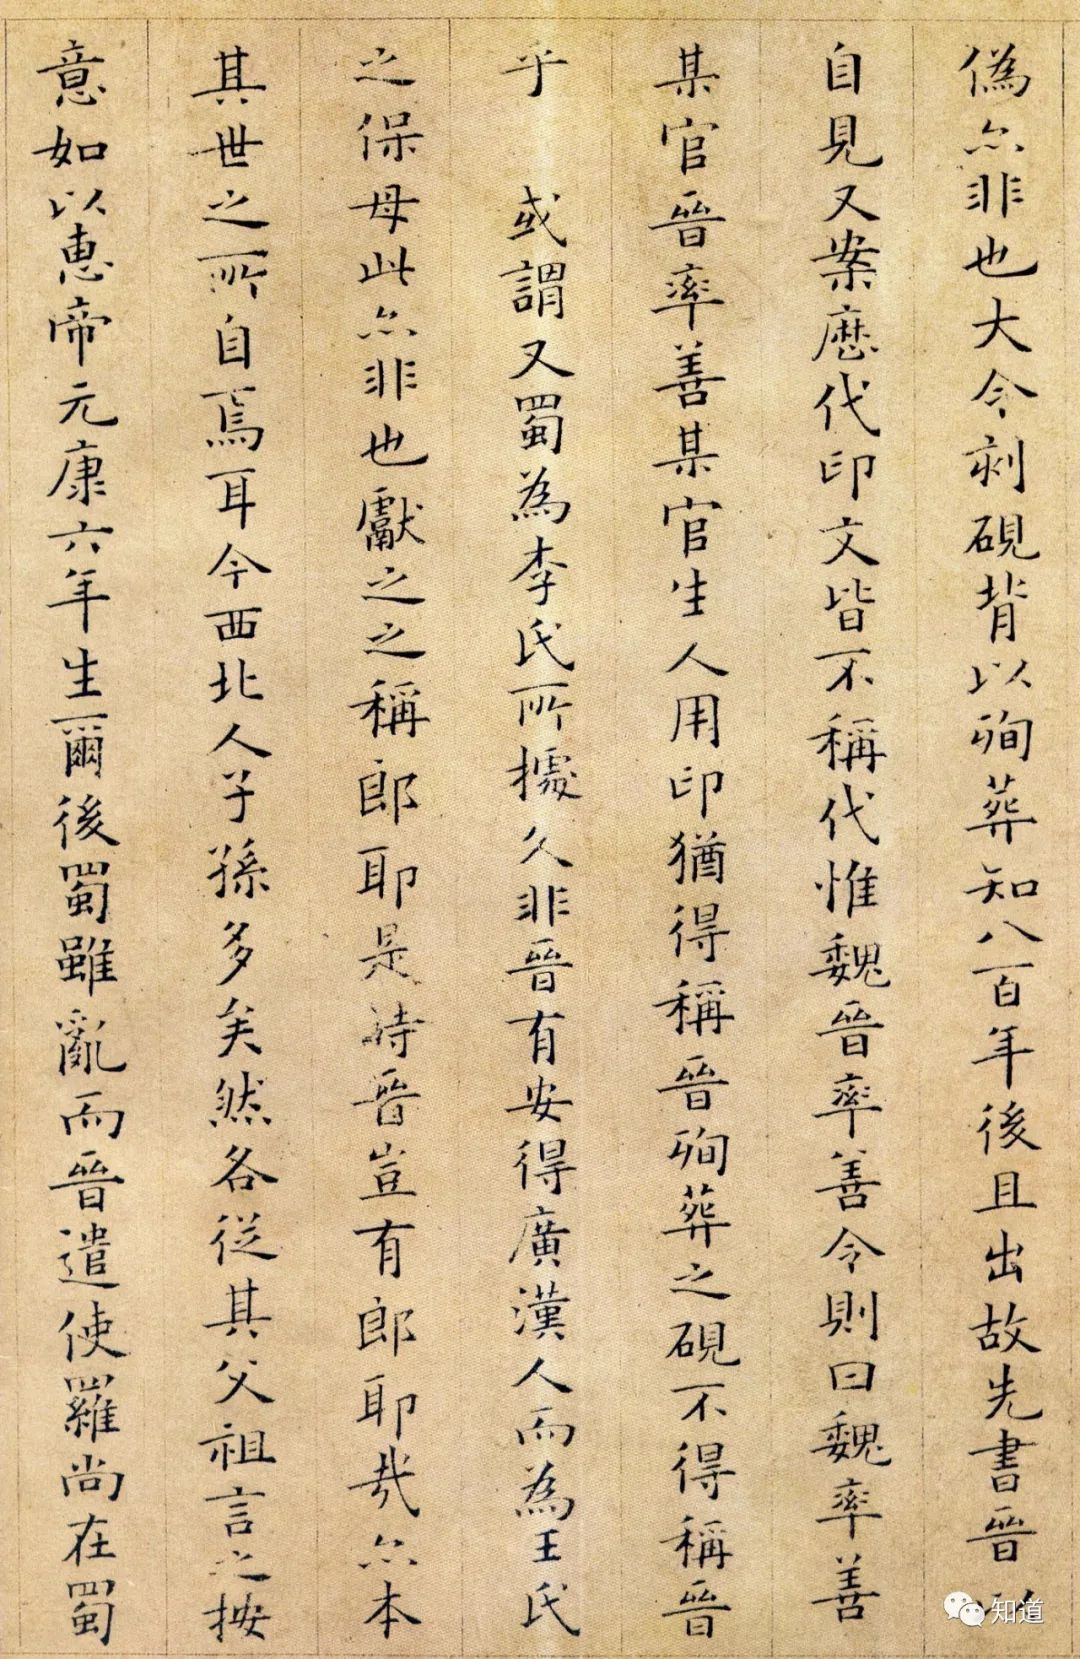 偽亦非也大令刻硯背以殉葬知八百年後且出故先書晉以
自見又案歷代印文皆不稱代惟魏晉率善令則曰魏率善
某官晉率善某官生人用印猶得稱晉殉葬之硯不得稱晉
乎 或謂又蜀為李氏所據久非晉有安得廣漢人而為王氏
之保母此亦非也獻之之稱郎耶是時晉豈有郎耶哉亦本
其世之所自焉耳今西北人子孫多矣然各從其父祖言之按
意如以惠帝元康六年生爾後蜀雖亂而晉遣使羅尚在蜀
知道